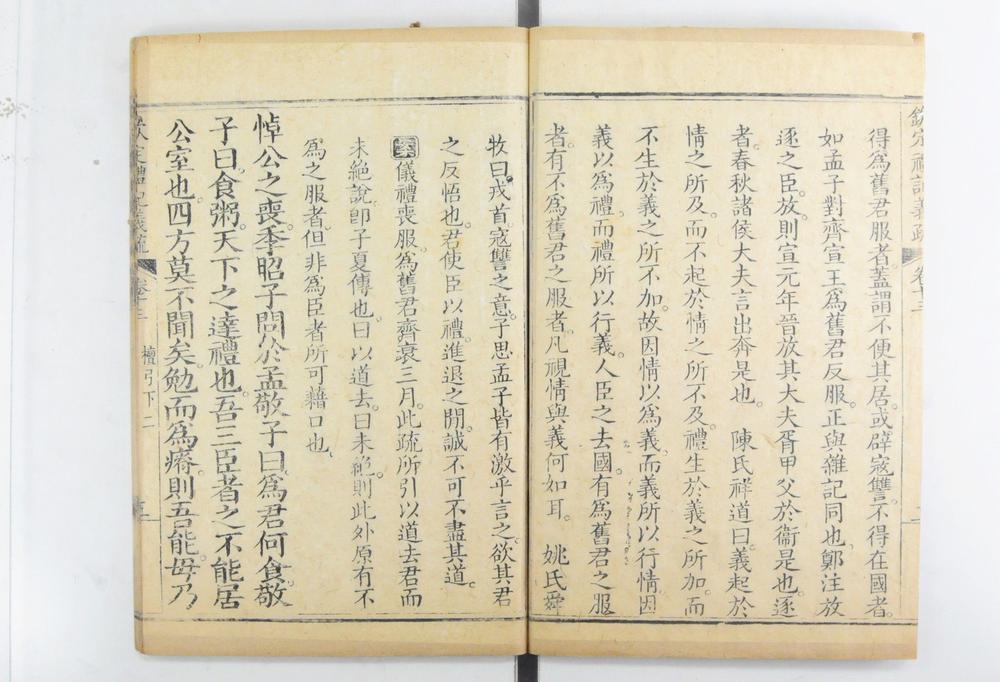 欽定禮記義疏 卷十三
得爲舊君服者蓋謂不便其居或辟寇讐不得在國者
如孟子對齊宣王爲舊君反服正與雜記同也鄭注放
逐之臣放則宣元年晉放其大夫胥甲父於衞是也逐
者春秋諸侯大夫言出奔是也 陳氏祥道曰義起於
情之所及而不起於情之所不及禮生於義之所加而
不生於義之所不加故因情以爲義而義所以行情因
義以爲禮而禮所以行義人臣之去國有爲舊君之服
者有不爲舊君之服者凡視情與義何如耳 姚氏舜
牧曰戎首寇讐之意子思孟子皆有激乎言之欲其君
之反悟也君使臣以禮進退之閒誠不可不盡其道
案儀禮喪服爲舊君齊衰三月此疏所引以道去君而
未絶說卽子夏傳也曰以道去曰未絶則此外原有不
爲之服者但非爲臣者所可藉口也
悼公之喪季昭子問於孟敬子曰爲君何食敬
子曰食粥天下之達禮也吾三臣者之不能居
公室也四方莫不聞矣勉而爲瘠則吾能毋乃
欽定禮記義疏 卷十三 檀弓下二